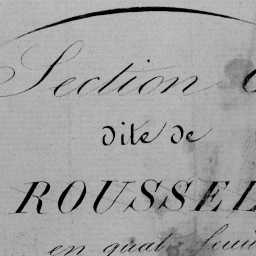 Section
dite de
ROUSSEL
en quat. feui